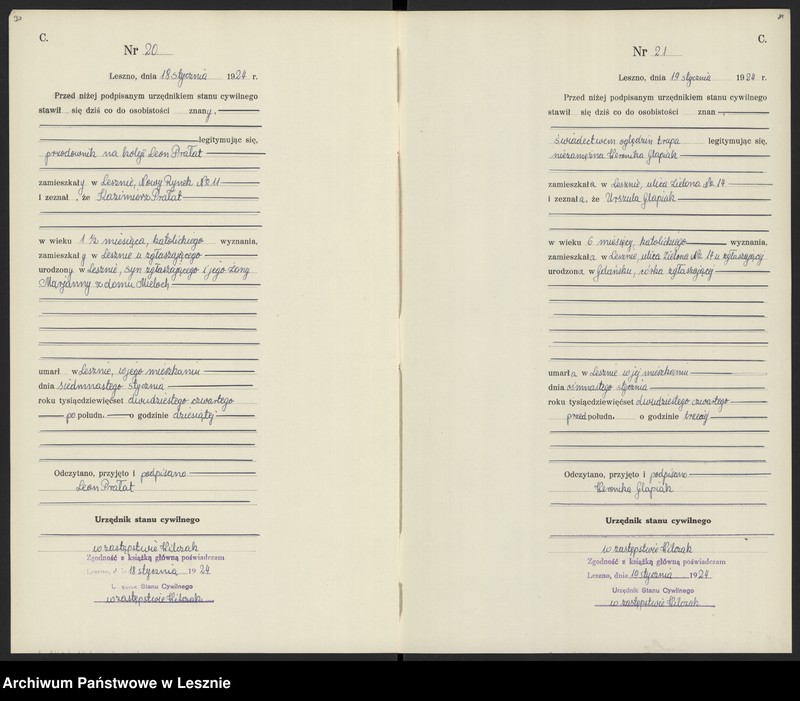 20
C.
Nr 20
Leszno, dnia 18 stycznia 1924 r.
Przed niżej podpisanym urzędnikiem stanu cywilnego
stawił się dziś co do osobistości znany,
legitymując się,
przodownik na kolei Leon Prałat
zamieszkały w Lesznie, Nowy Rynek № 11
i zeznał, że Kazimierz Prałat
w wieku 1 ½ miesiąca, katolickiego wyznania,
zamieszkały w Lesznie u zgłaszającego
urodzony w Lesznie, syn zgłaszającego i jego żony
Marjanny z domu Mieloch
umarł w Lesznie, w jego mieszkaniu
dnia siedmnastego stycznia
roku tysiącdziewięćset dwudziestego czwartego
po połudn. o godzinie dziesiątej
Odczytano, przyjęto i podpisano
Leon Prałat
Urzędnik stanu cywilnego
w zastępstwie Witczak
Zgodność z książką główną poświadczam
Leszno, d 18 stycznia 1924
Urzędnik Stanu Cywilnego
w zastępstwie Witczak
21
C.
Nr 21
Leszno, dnia 19 stycznia 1924 r.
Przed niżej podpisanym urzędnikiem stanu cywilnego
stawił się dziś co do osobistości znan
świadectwem oględzin trupa legitymując się,
niezamężna Weronika Glapiak
zamieszkała w Lesznie, ulica Zielona № 14
i zeznała, że Urszula Glapiak
w wieku 6 miesięcy, katolickiego wyznania,
zamieszkała w Lesznie, ulica Zielona № 14 u zgłaszającej
urodzona w Gdańsku, córka zgłaszającej
umarła w Lesznie w jej mieszkaniu
dnia ośmnastego stycznia
roku tysiącdziewięćset dwudziestego czwartego
przed połudn. o godzinie trzeciej
Odczytano, przyjęto i podpisano
Weronika Glapiak
Urzędnik stanu cywilnego
w zastępstwie Witczak
Zgodność z książką główną poświadczam
Leszno, dnia 19 stycznia 1924
Urzędnik Stanu Cywilnego
w zastępstwie Witczak
Archiwum Państwowe w Lesznie